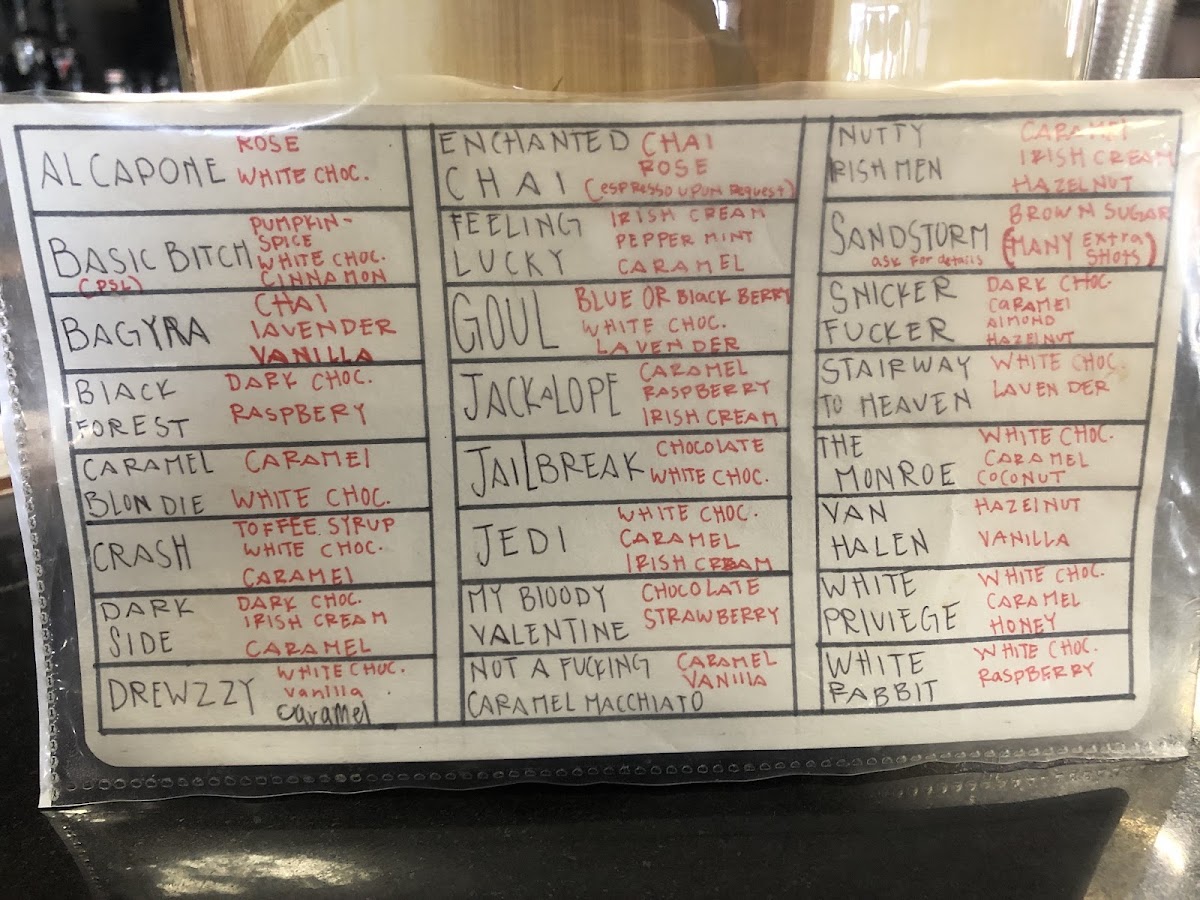 AL CAPONE
ROSE
WHITE CHOC.
BASIC BITCH
(PSL)
PUMPKIN-
SPICE
WHITE CHOC.
CINNAMON
BAGYRA
CHAI
LAVENDER
VANILLA
BLACK
FOREST
DARK CHOC.
RASPBERY
CARAMEL
BLONDIE
CARAMEL
WHITE CHOC.
CRASH
TOFFEE SYRUP
WHITE CHOC.
CARAMEL
DARK
SIDE
DARK CHOC.
IRISH CREAM
CARAMEL
DREWZZY
WHITE CHOC.
vanilla
caramel
ENCHANTED
CHAI
CHAI
ROSE
(ESPRESSO UPUN REQUEST)
FEELING
LUCKY
IRISH CREAM
PEPPER MINT
CARAMEL
GOUL
BLUE OR BLACK BERRY
WHITE CHOC.
LAVENDER
JACKALOPE
CARAMEL
RASPBERRY
IRISH CREAM
JAILBREAK
CHOCOLATE
WHITE CHOC.
JEDI
WHITE CHOC.
CARAMEL
IRISH CREAM
MY BLOODY
VALENTINE
CHOCOLATE
STRAWBERRY
NOT A FUCKING
CARAMEL MACCHIATO
CARAMEL
VANILLA
NUTTY
IRISH MEN
CARAMEL
IRISH CREAM
HAZELNUT
SANDSTORM
ASK FOR DETAILS
BROWN SUGAR
(MANY EXTRA
SHOTS)
SNICKER
FUCKER
DARK CHOC.
CARAMEL
ALMOND
HAZELNUT
STAIRWAY
TO HEAVEN
WHITE CHOC.
LAVENDER
THE
MONROE
WHITE CHOC.
CARAMEL
COCONUT
VAN
HALEN
HAZELNUT
VANILLA
WHITE
PRIVIEGE
WHITE CHOC.
CARAMEL
HONEY
WHITE
RABBIT
WHITE CHOC.
RASPBERRY